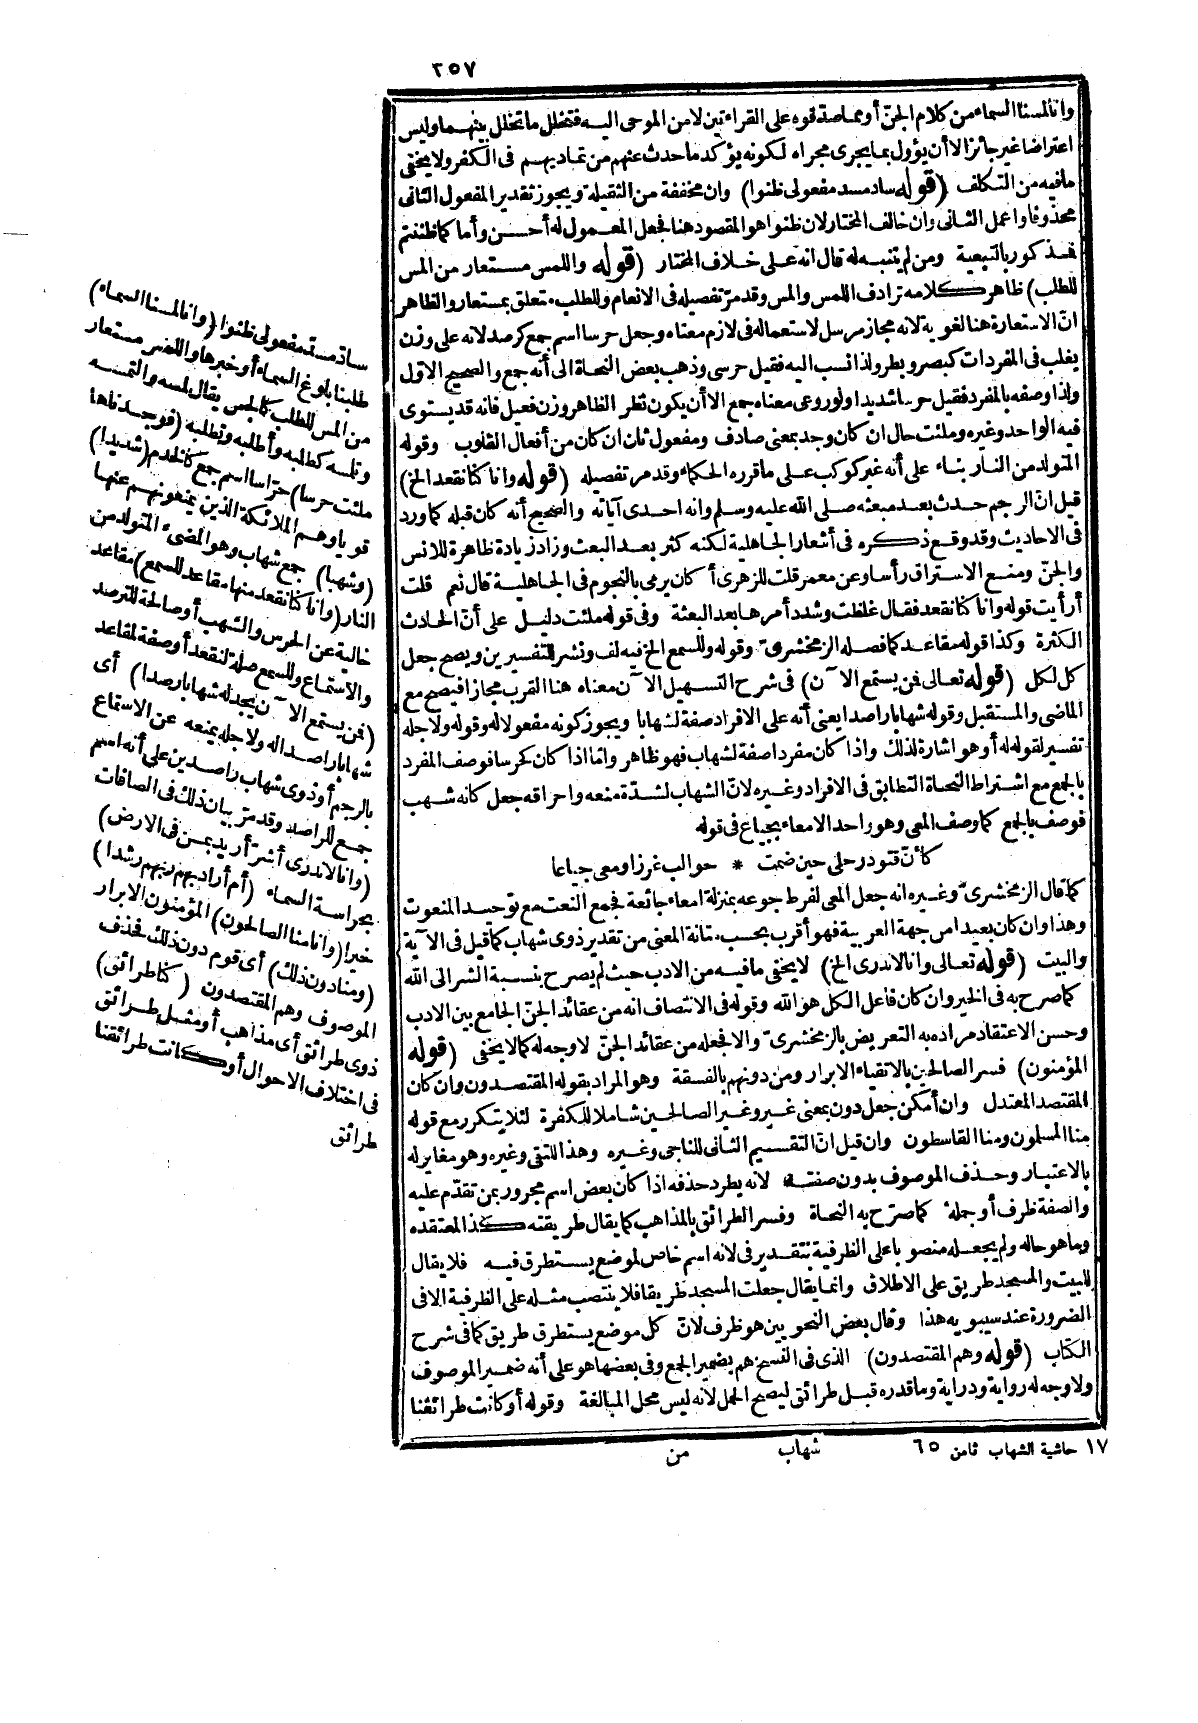 ٢٥٧
وانا لمسنا السماء من كلام الجن أو مما صدقوه على القراءتين لا من الموحى اليه فتخلل ما تخلل بينهما وليس
اعتراضا غير جائز الا أن يؤول بما يجرى مجراه لكونه يؤكد ما حدث عنهم من تماديهم فى الكفر ولا يخفى
مافيه من التكلف (قوله ساد مسد مفعولى ظنوا) وان مخففة من الثقيلة ويجوز تقدير المفعول الثانى
محذوفا واعمل الثانى وان خالف المختار لان ظنوا هو المقصود هنا فجعل المعمول له أحسن وأما كما ظننتم
فمذكور بالتبعية ومن لم يتنبه له قال انه على خلاف المختار (قوله واللمس مستعار من المس
للطلب) ظاهر كلامه ترادف اللمس والمس وقد مر تفصيله فى الانعام وللطلب متعلق بمستعار والظاهر
انّ الاستعارة هنا لغوية لانه مجاز مرسل لاستعماله فى لازم معناه وجعل حرسا اسم جمع كرصد لانه على وزن
يغلب فى المفردات كبصر وبطر ولذا نسب اليه فقيل حرسى وذهب بعض النحاة الى أنه جمع والصحيح الاوّل
ولذا وصفه بالمفرد فقيل حرسا شديدا ولو روعى معناه جمع الا أن يكون نظر الظاهر وزن فعيل فانه قد يستوى
فيه الواحد وغيره وملئت حال ان كان وجد بمعنى صادف ومفعول ثان ان كان من أفعال القلوب وقوله
المتولد من النار بناء على أنه غير كوكب على ما قرره الحكماء وقد مر تفصيله (قوله وانا كنا نقعد الخ)
قيل انّ الرجم حدث بعد مبعثه صلى الله عليه وسلم وانه احدى آياته والصحيح أنه كان قبله كما ورد
فى الاحاديث وقد وقع ذكره فى أشعار الجاهلية لكنه كثر بعد البعث وزاد زيادة ظاهرة للانس
والجنّ ومنع الاستراق رأسا وعن معمر قلت للزهرى أكان يرمى بالنجوم فى الجاهلية قال نعم قلت
أرأيت قوله وانا كنا نقعد فقال غلظت وشدد أمرها بعد البعثة وفى قوله ملئت دليل على أنّ الحادث
الكثرة وكذا قوله مقاعد كما فصله الزمخشرىّ وقوله وللسمع الخ فيه لف ونشر للتفسيرين ويصح جعل
كل لكل (قوله تعالى فمن يستمع الآن) فى شرح التسهيل الآن معناه هنا القرب مجازا فيصح مع
الماضى والمستقبل وقوله شهابا راصدا يعنى أنه على الافراد صفة لشهابا ويجوز كونه مفعولا له وقوله ولاجله
تفسير لقوله له أو هو اشارة لذلك واذا كان مفردا صفة لشهاب فهو ظاهر وامّا اذا كان كحرسا فوصف المفرد
بالجمع مع اشتراط النحاة التطابق فى الافراد وغيره لانّ الشهاب لشدة منعه واحراقه جعل كانه شهب
فوصف بالجمع كما وصف المعى وهو واحد الامعاء بجياع فى قوله
كأنّ قتود رحلى حين ضمت * حوالب غرزا ومعى جياعا
كما قال الزمخشرىّ وغيره انه جعل المعى لفرط جوعه بمنزلة امعاء جائعة فجمع النعت مع توحيد المنعوت
وهذا وان كان بعيدا من جهة العربية فهو أقرب بحسب متانة المعنى من تقدير ذوى شهاب كما قيل فى الآية
والبيت (قوله تعالى وانا لاندرى الخ) لا يخفى مافيه من الادب حيث لم يصرح بنسبة الشر الى الله
كما صرح به فى الخير وان كان فاعل الكل هو الله وقوله فى الانتصاف انه من عقائد الجنّ الجامع بين الادب
وحسن الاعتقاد مراده به التعريض بالزمخشرىّ والا فجعله من عقائد الجنّ لا وجه له كما لا يخفى (قوله
المؤمنون) فسر الصالحين بالاتقياء الابرار ومن دونهم بالفسقة وهو المراد بقوله المقتصدون وان كان
المقتصد المعتدل وان أمكن جعل دون بمعنى غير وغير الصالحين شاملا للكفرة لئلا يتكرر مع قوله
منا المسلمون ومنا القاسطون وان قيل انّ التقسيم الثانى للناجى وغيره وهذا للتقى وغيره وهو مغاير له
بالاعتبار وحذف الموصوف بدون صفته لانه يطرد حذفه اذا كان بعض اسم مجرور بمن تقدّم عليه
والصفة ظرف أو جملة كما صرّح به النحاة وفسر الطرائق بالمذاهب كما يقال طريقته كذا لمعتقده
وما هو حاله ولم يجعله منصوبا على الظرفية بتقدير فى لانه اسم خاص لموضع يستطرق فيه فلا يقال
للبيت والمسجد طريق على الاطلاق وانما يقال جعلت المسجد طريقا فلا ينتصب مثله على الظرفية الا فى
الضرورة عند سيبويه هذا وقال بعض النحويين هو ظرف لانّ كل موضع يستطرق طريق كما فى شرح
الكتاب (قوله وهم المقتصدون) الذى فى النسخ هم بضمير الجمع وفى بعضها هو على أنه ضمير الموصوف
ولا وجه له رواية ودراية وما قدره قبل طرائق ليصح الحمل لانه ليس محل المبالغة وقوله أو كانت طرائقنا
١٧ حاشية الشهاب ثامن ٦٥ شهاب من
سادّ مسدّ مفعولى ظنوا (وانا لمسنا السماء)
طلبنا بلوغ السماء أو خبرها واللمس مستعار
من المس للطلب كالجس يقال لمسه والتمسه
وتلمسه كطلبه وأطلبه وتطلبه (فوجدناها
ملئت حرسا) حرّاسا اسم جمع كالخدم (شديدا)
قويا وهم الملائكة الذين يمنعونهم عنها
(وشهبا) جمع شهاب وهو المضىء المتولد من
النار (وانا كنا نقعد منها مقاعد للسمع) مقاعد
خالية عن الحرس والشهب أو صالحة للترصد
والاستماع وللسمع صلة لنقعد أو صفة لمقاعد
(فمن يستمع الآن يجد له شهابا رصدا) أى
شهابا راصدا له ولاجله يمنعه عن الاستماع
بالرجم أو ذوى شهاب راصدين على أنه اسم
جمع للراصد وقد مرّ بيان ذلك فى الصافات
(وانا لاندرى أشرّ أريد بمن فى الارض)
بحراسة السماء (أم أراد بهم ربهم رشدا)
خيرا (وانا منا الصالحون) المؤمنون الابرار
(ومنا دون ذلك) أى قوم دون ذلك فحذف
الموصوف وهم المقتصدون (كنا طرائق)
ذوى طرائق أى مذاهب أو مثل طرائق
فى اختلاف الاحوال أو كانت طرائقنا
طرائق